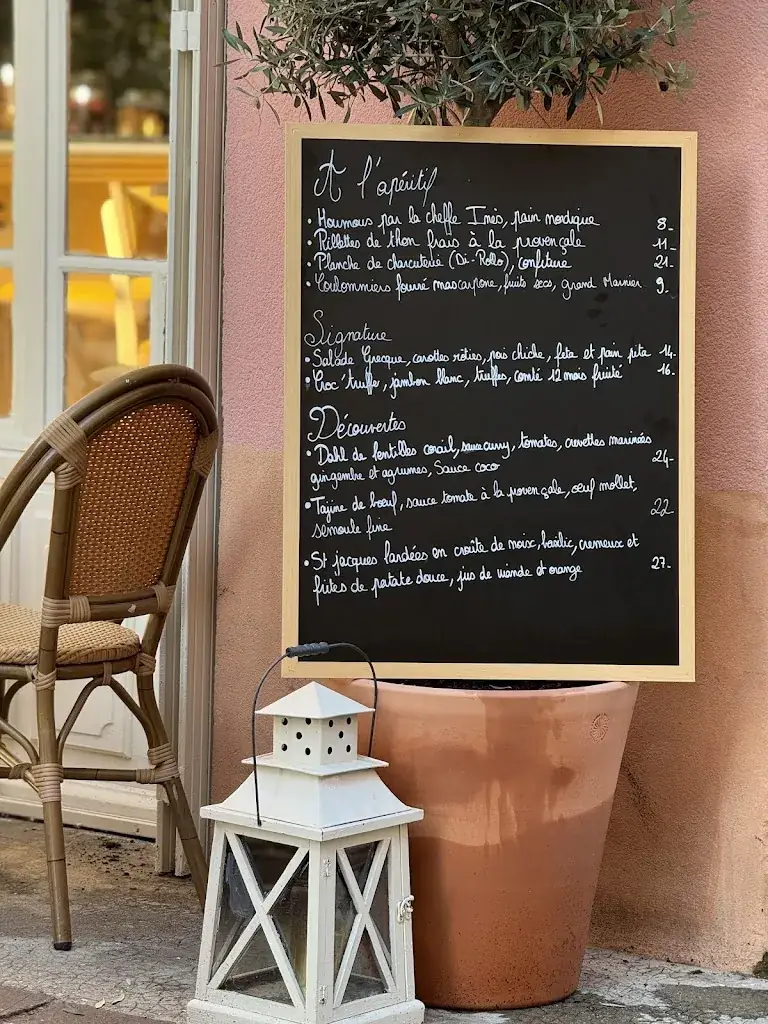 A l'apéritif
• Houmous par la cheffe Inès, pain nordique 8-
• Rillettes de thon frais à la provençale 11-
• Planche de charcuterie (Di-Rollo), confiture 21-
• Coulommiers fourré mascarpone, fruits secs, grand Marnier 9-
Signature
• Salade Grecque, carottes rôties, pois chiche, feta et pain pita 14-
• Croc'truffe, jambon blanc, truffes, comté 12 mois fruité 16-
Découvertes
• Dahl de lentilles corail, sauce curry, tomates, crevettes marinées
gingembre et agrumes, Sauce coco 24-
• Tajine de bœuf, sauce tomate à la provençale, œuf mollet,
semoule fine 22
• St jacques lardées en croûte de noix, basilic, crémeux et
frites de patate douce, jus de viande et orange 27-